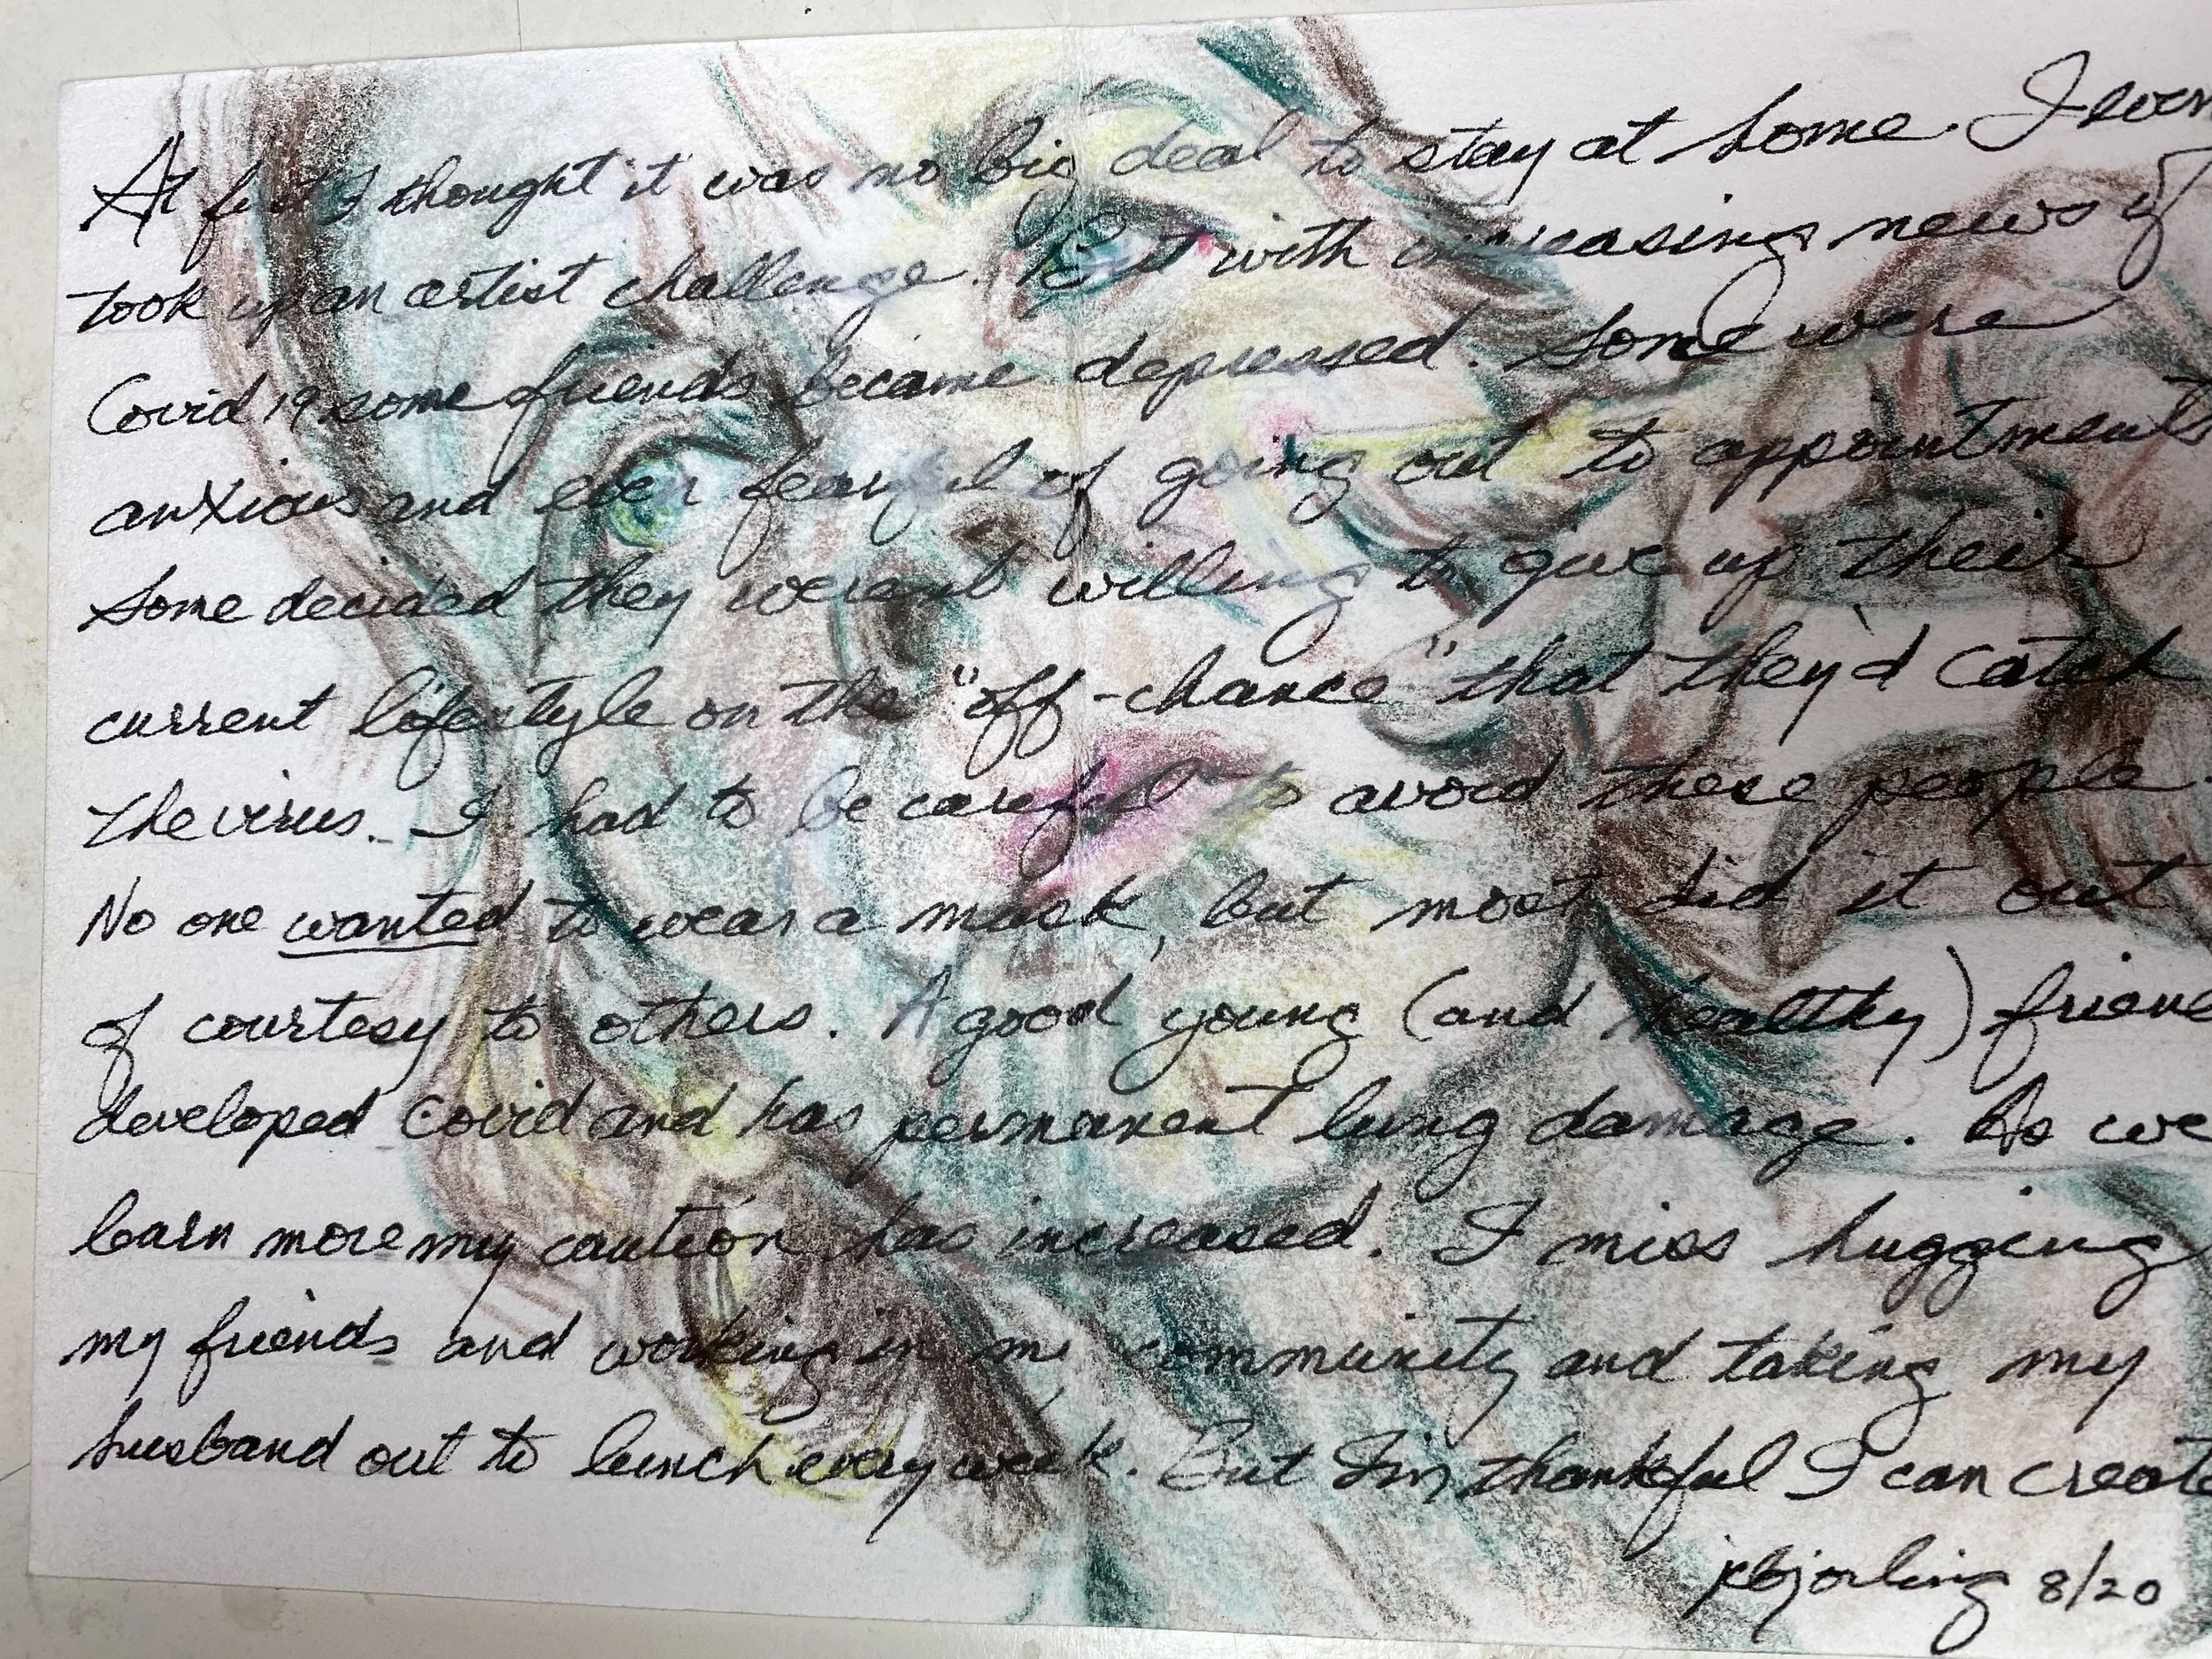 At first I thought it was no big deal to stay at home. I even
took up an artist challenge. But with increasing news of
Covid 19 some friends became depressed. Some were
anxious and even fearful of going out to appointments
Some decided they weren't willing to give up their
current lifestyle on the "off-chance" that they'd catch
the virus. I had to be careful to avoid these people
No one wanted to wear a mask, but most did it out
of courtesy to others. A good young (and healthy) friend
developed covid and has permanent lung damage. As we
learn more my caution has increased. I miss hugging
my friends and working in my community and taking my
husband out to lunch every week. But I'm thankful I can create
8/20